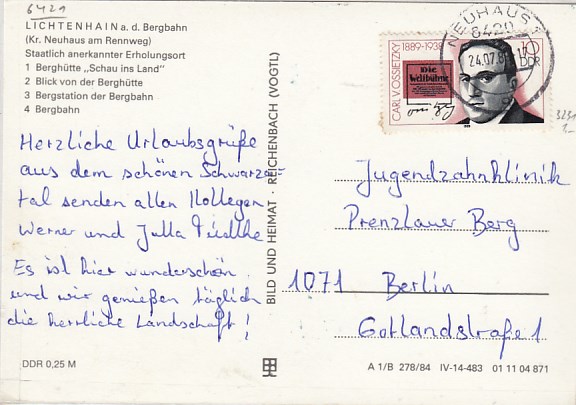 6421
LICHTENHAIN a. d. Bergbahn
(Kr. Neuhaus am Rennweg)
Staatlich anerkannter Erholungsort
1 Berghütte „Schau ins Land"
2 Blick von der Berghütte
3 Bergstation der Bergbahn
4 Bergbahn
Herzliche Urlaubsgrüße
aus dem schönen Schwarza-
tal senden allen Kollegen
Werner und Jutta
Es ist hier wunderschön
und wir genießen täglich
die herrliche Landschaft!
DDR 0,25 M
BILD UND HEIMAT · REICHENBACH (VOGTL)
CARL V. OSSIETZKY 1889-1938
Die
Weltbühne
10
DDR
NEUHAUS 1
6420
24.07.8
3231
1,-
Jugendzahnklinik
Prenzlauer Berg
1071 Berlin
Gotlandstraße 1
A 1/B 278/84 IV-14-483 01 11 04 871